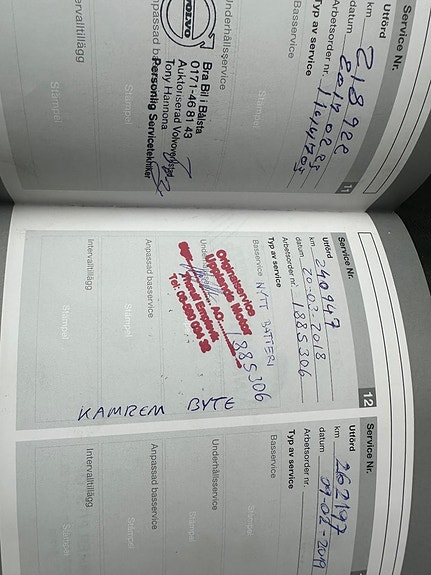 Service Nr.
11
Utförd
km 218922
datum 2017 02 23
Arbetsorder nr. 11614703
Typ av service
Basservice
Underhållsservice
Stämpel
Anpassad basservice
Stämpel
Intervalltillägg
Stämpel
VOLVO
Bra Bil i Bålsta
0171-46 81 43
Auktoriserad Volvoverkstad
Tony Hannona
Personlig Servicetekniker
Service Nr.
12
Utförd
km 240947
datum 20-03-2018
Arbetsorder nr. 1885306
Typ av service
Basservice NYTT BATTERI
Originalservice
Upplands Motor
AO: 1885306
Tel: 08-590 094 32
Anpassad basservice
Stämpel
Intervalltillägg
Stämpel
KAMREM BYTE
Service Nr.
Utförd
km 262197
datum 09-02-2019
Arbetsorder nr.
Typ av service
Basservice
Underhållsservice
Stämpel
Anpassad basservice
Stämpel
Intervalltillägg
Stämpel